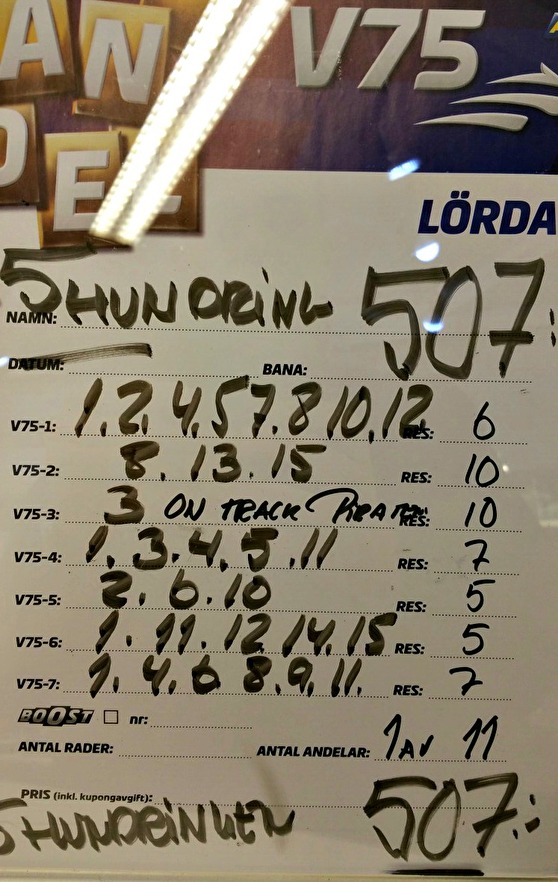 AN V75
DEL
LÖRDA
5HUNDRING 507:
NAMN:
DATUM: BANA:
V75-1: 1.2.4.5 7.8 10.12 RES: 6
V75-2: 8.13.15 RES: 10
V75-3: 3 ON TRACK PIRATEN RES: 10
V75-4: 1.3.4.5.11 RES: 7
V75-5: 2.6.10 RES: 5
V75-6: 1.11.12 14.15 RES: 5
V75-7: 1.4.6 8.9.11. RES: 7
BOOST nr:
ANTAL RADER: ANTAL ANDELAR: 1 AV 11
PRIS (inkl. kupongavgift): 507:-